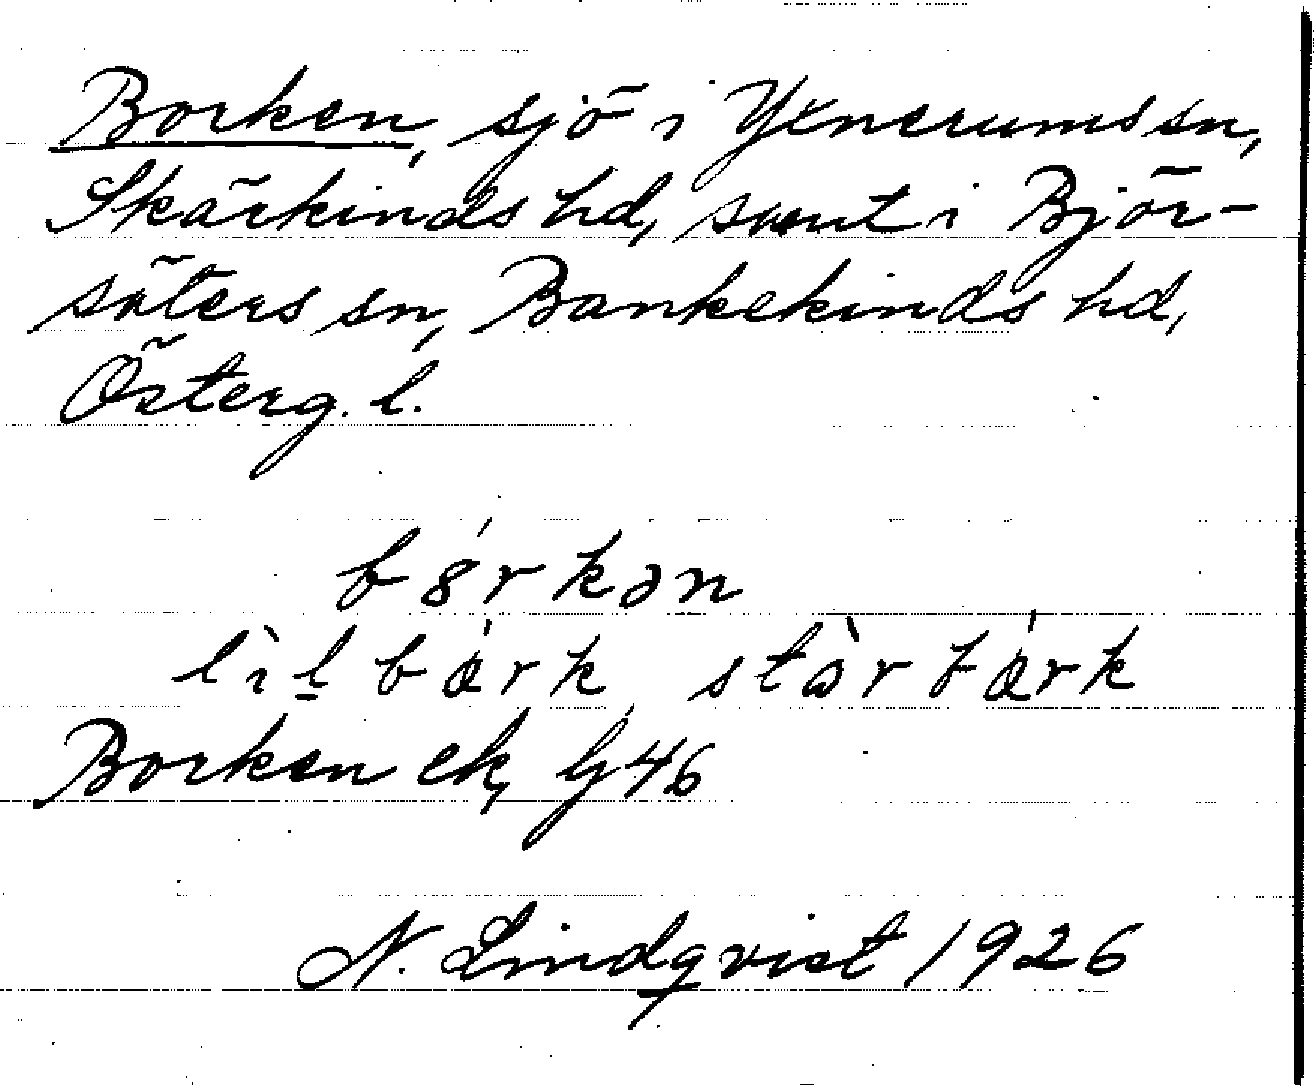 Borken, sjö i Yxnerums sn,
Skärkinds hd, samt i Björ-
säters sn, Bankekinds hd,
Österg. l.
bórkən
lìlbárk, stàrbárk
Borken ek, bl 46
N. Lindqvist 1926